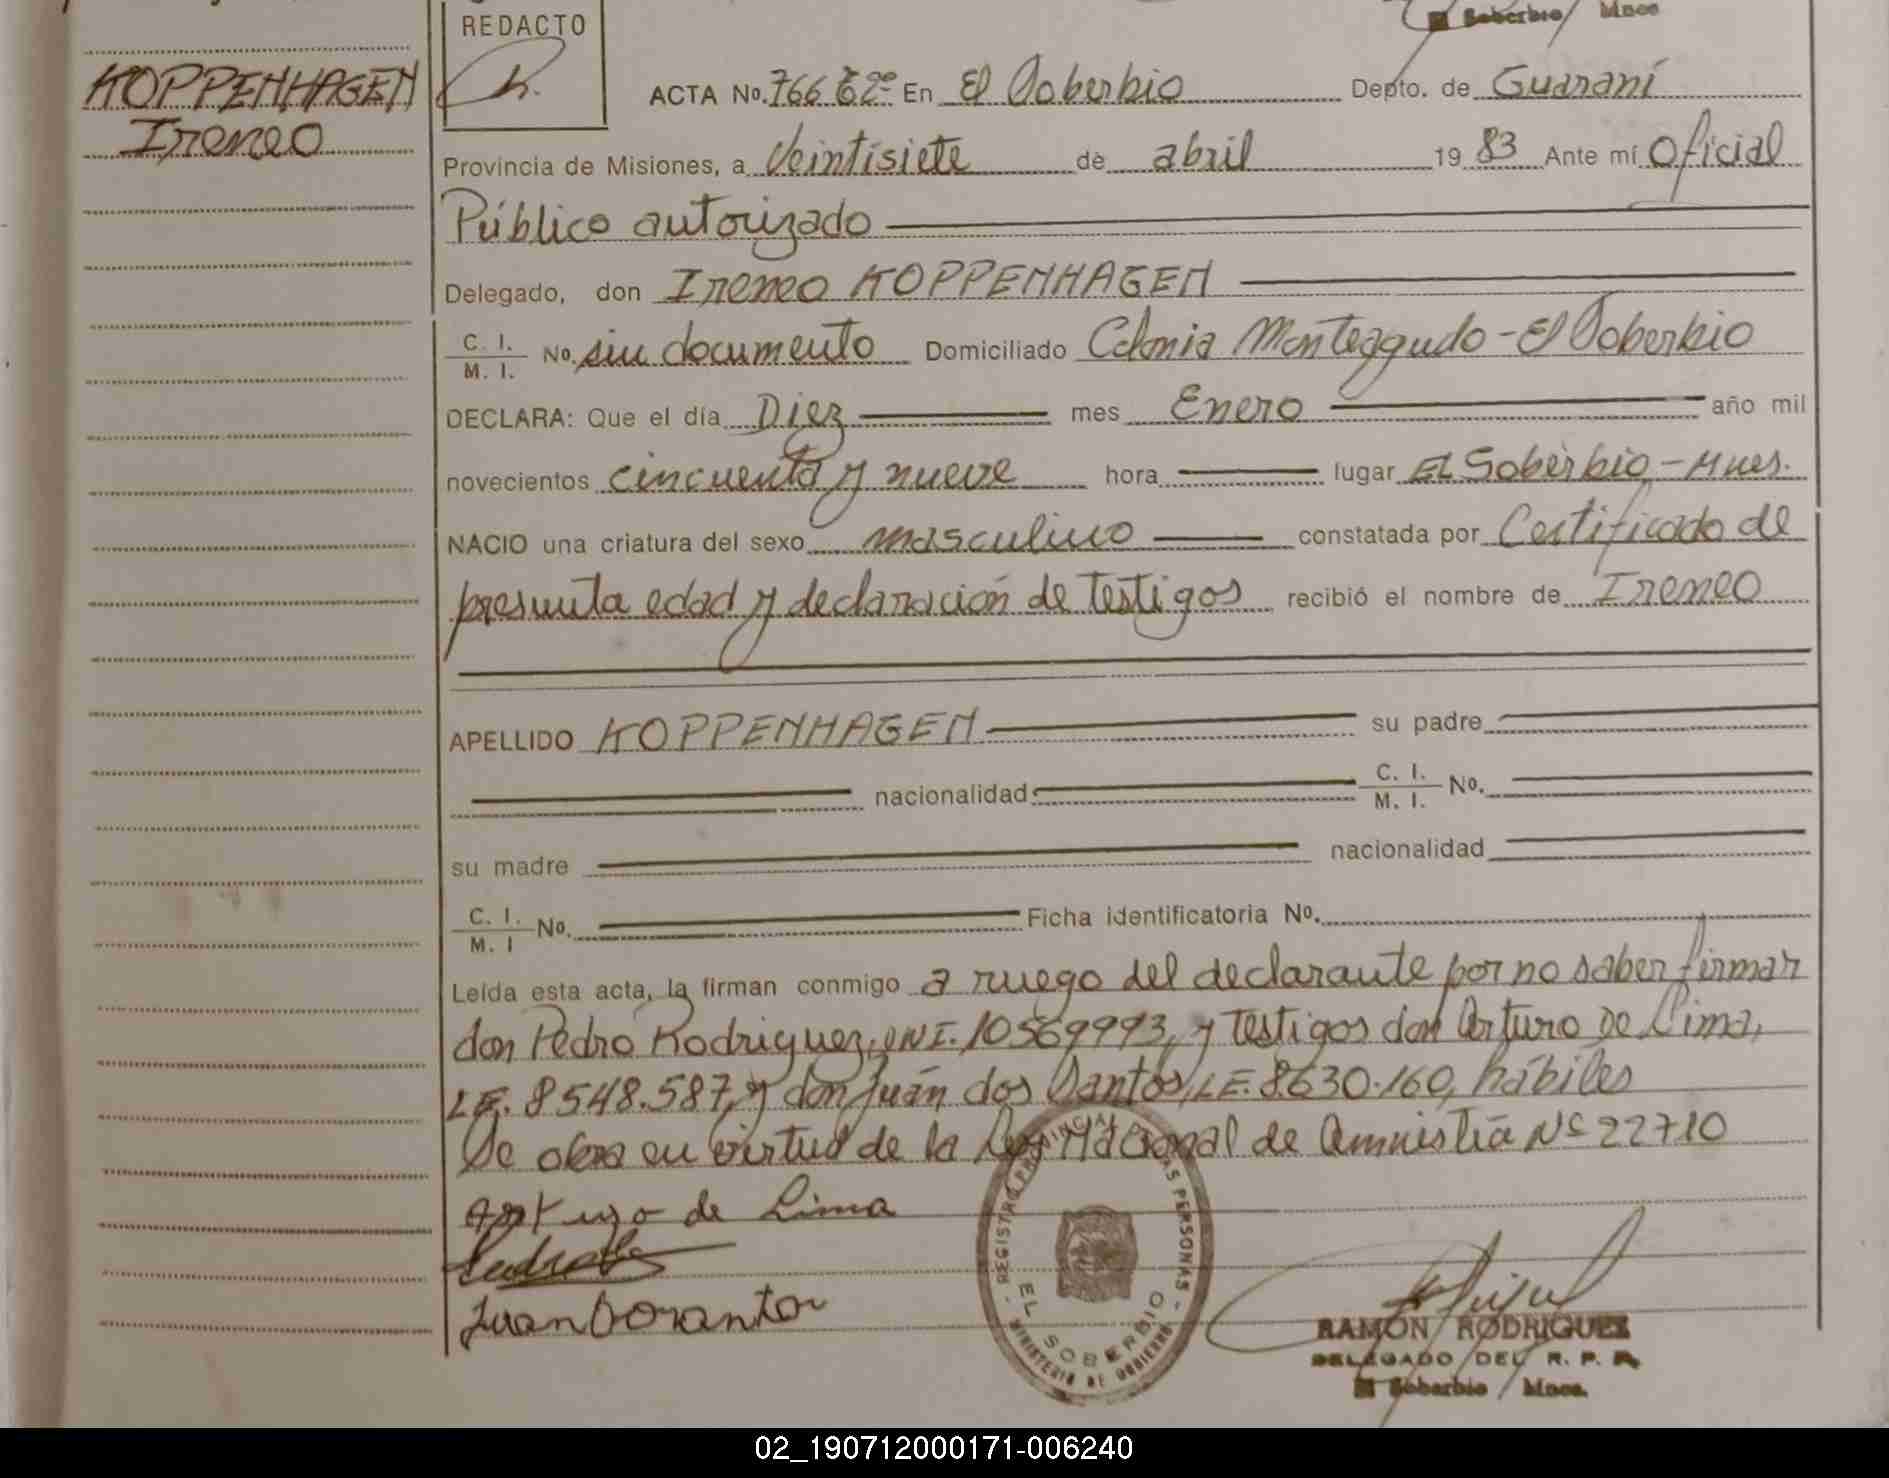 Soberbio Mnes
REDACTO
KOPPENHAGEN
Ireneo
ACTA No. 766 Tº 2º En El Soberbio Depto. de Guaraní
Provincia de Misiones, a Veintisiete de abril 19 83 Ante mí Oficial
Público autorizado
Delegado, don Ireneo KOPPENHAGEN
C. I. M. I. No. sin documento Domiciliado Colonia Monteagudo - El Soberbio
DECLARA: Que el día Diez mes Enero año mil
novecientos cincuenta y nueve hora lugar EL Soberbio - Mnes.
NACIO una criatura del sexo masculino constatada por Certificado de
presunta edad y declaración de testigos recibió el nombre de Ireneo
APELLIDO KOPPENHAGEN su padre
nacionalidad C. I. M. I. No.
su madre nacionalidad
C. I. M. I No. Ficha identificatoria No.
Leída esta acta, la firman conmigo a ruego del declarante por no saber firmar
don Pedro Rodriguez, DNI. 10569993, y testigos don Arturo De Lima,
LE. 8548.587, y don Juán dos Santos, LE. 8.630.160, hábiles
Se obra en virtud de la Ley Nacional de Amnistia Nº 22710
Artuzo de Lima
Juan Dosantos
REGISTRO PROVINCIAL DE LAS PERSONAS
EL SOBERBIO
MINISTERIO DE GOBIERNO
RAMON RODRIGUEZ
DELEGADO DEL R. P. P.
El Soberbio Mnes.
02_190712000171-006240